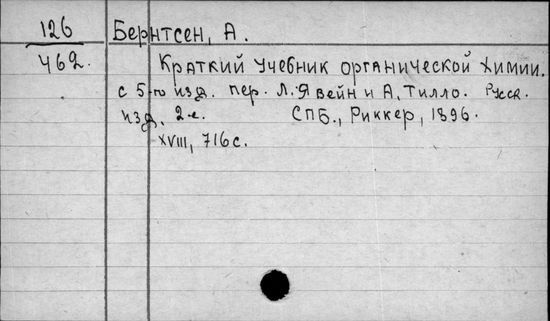 126 Бернтсен, А.
462. Краткий учебник органической химии.
с 5-го изд. пер. Л. Явейн и А. Тилло. Русск.
изд. 2-е. СПБ., Риккер, 1896.
XVIII, 716 с.